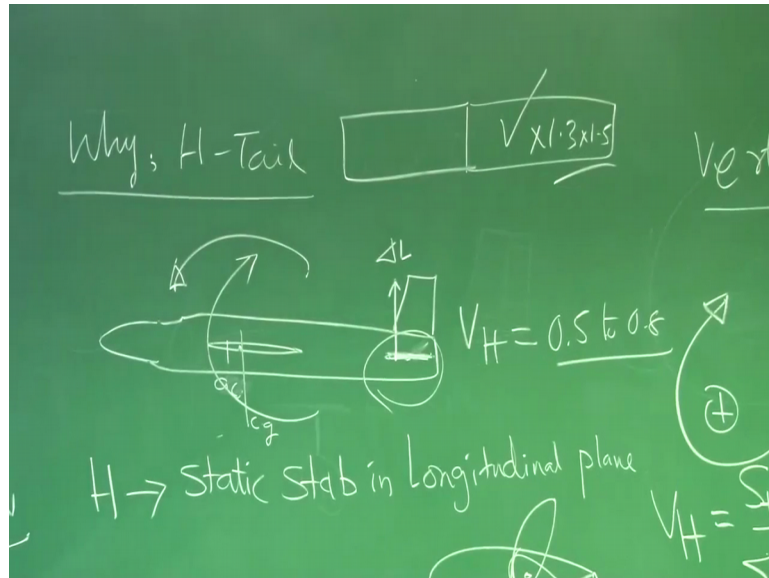 Why, H-Tail
√ x1.3x1.5
Vert
ΔL
V_H = 0.5 to 0.8
ac
cg
+
H → Static Stab in Longitudinal plane
V_H =